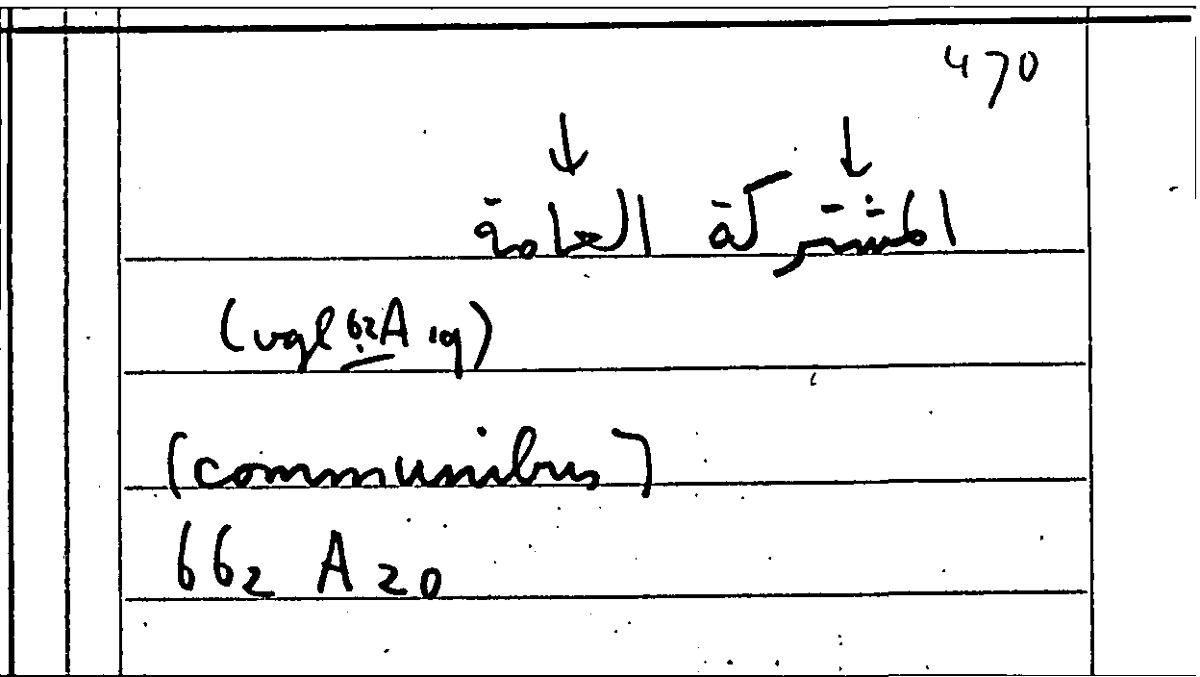 470
↓ ↓
المشتركة العامة
(vgl 62A 19)
(communibus)
662 A 20